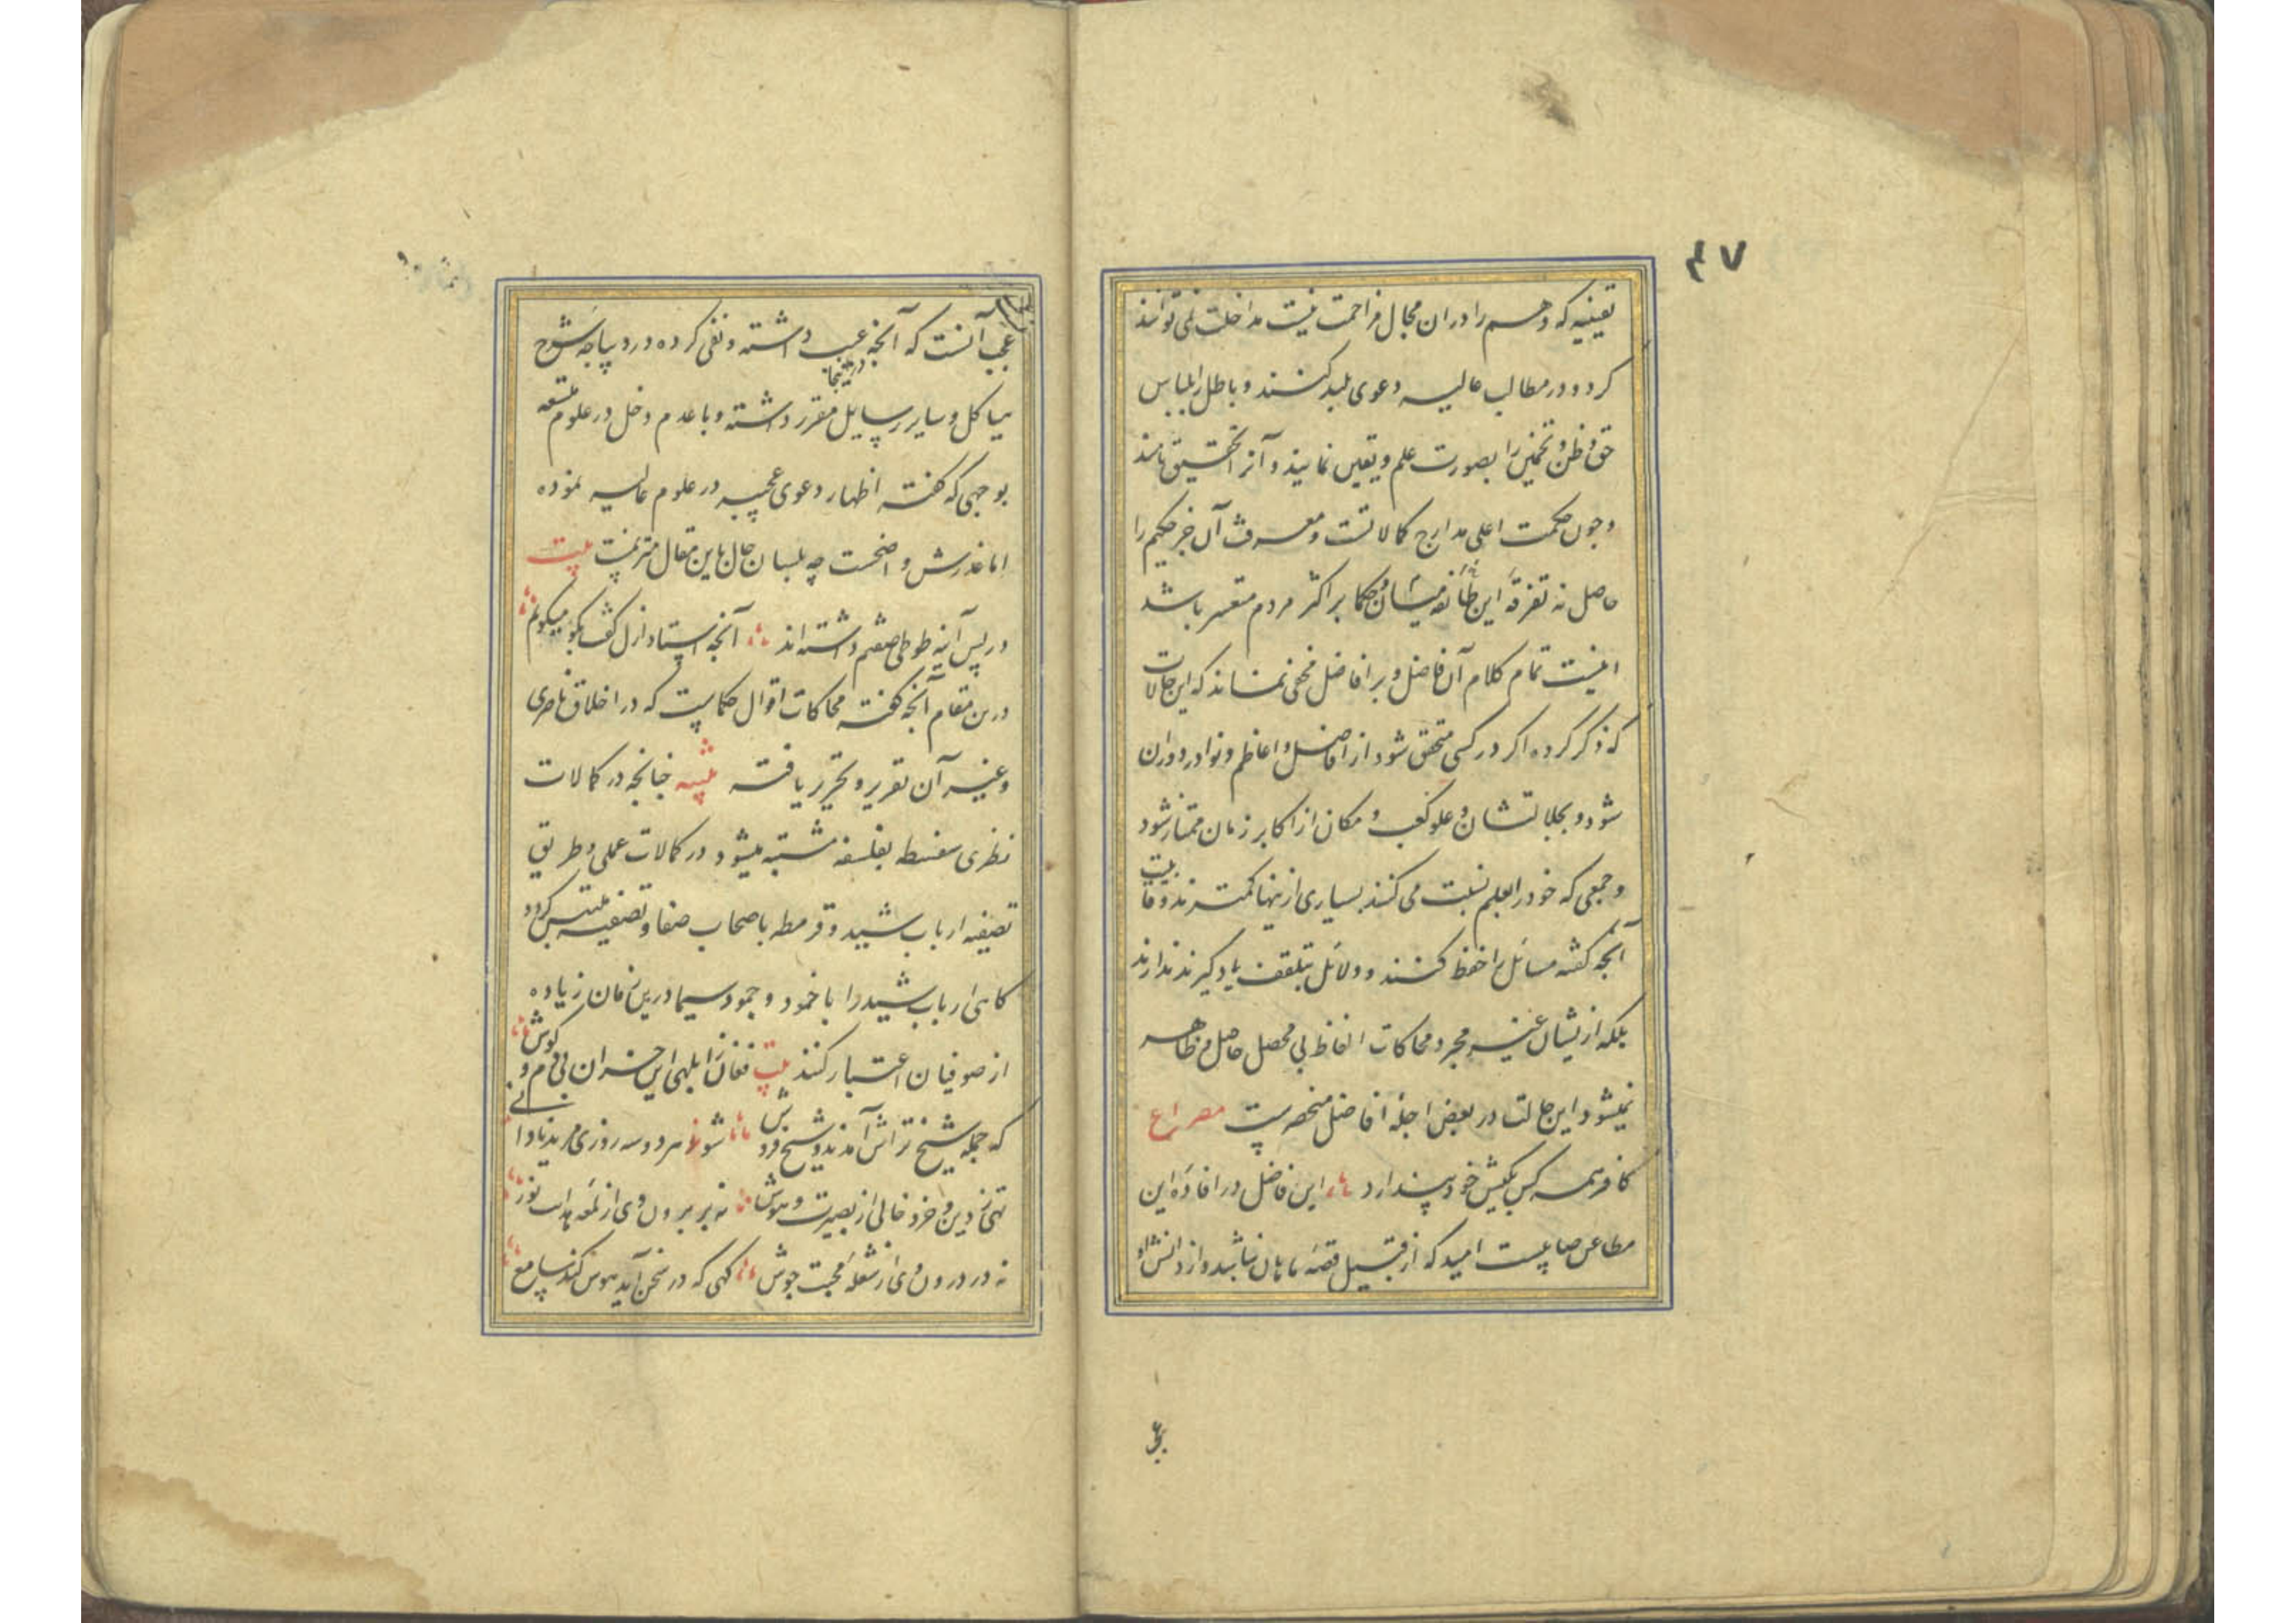 ۴۷
یقینیه که وهم را در ان مجال مزاحمت نیست مداخلت نمی توانند
کرد و در مطالب عالیه دعوی بلند کنند و باطل را بلباس
حق و ظن و تخمین را بصورت علم و یقین نمایند و آنرا تحقیق نامند
و چون حکمت اعلی مدارج کمالاتست و معرفت آن جز حکیم را
حاصل نه تفرقهٔ این طائفه میشان و حکما بر اکثر مردم متعسر باشد
اینست تمام کلام آن فاضل و بر افاضل مخفی نماند که این حالات
که ذکر کرده اکر در کسی متحقق شود از افاضل و اعاظم و نوادر دوران
شود و بجلالت شان و علو کعب و مکان از اکابر زمان ممتاز شود
و جمعی که خود را بعلم نسبت می کنند بسیاری ازینها کمترند و قابلیت
آنچه کفته مسائل را حفظ کنند و دلائل بتلقف یاد کیرند ندارند
بلکه ازیشان غیر مجرد محاکات الفاظ بی محصل حاصل و ظاهر
نمیشود و این حالت در بعض اجلهٔ افاضل منحصرست مصراع
کافر همه کس بکیش خود پندارد این فاضل در افادهٔ این
مطاعن صایبست امید که از قبیل قصهٔ ماهان نباشد و از دانش او
عجب آنست که آنچه عیب داشته و نفی کرده در دیباچه شرح
هیاکل و سایر رسایل مقرر داشته و با عدم دخل در علوم متسقه
درینجا
بوجهی که کفته اظهار دعوی عجیبه در علوم عالیه نموده
اما عذرش واضحست چه بلسان حال باین مقال مترنمست بیت
در پس آینه طوطی صفتم داشته اند آنچه استاد ازل کفت بکو میکویم
درین مقام آنچه کفته محاکات اقوال حکماست که در اخلاق ناصری
و غیر آن تقریر و تحریر یافته تنبیه چنانچه در کمالات
نظری سفسطه بفلسفه مشتبه میشود در کمالات عملی و طریق
تصفیه ارباب شید و قرمطه باصحاب صفا و تصفیه ملتبس کردد
کاهی ارباب شید را با خمود و جمود سیما درین زمان زیاده
از صوفیان اعتبار کنند بیت فغان ز ابلهی این خران بی دم و کوش
که جمله شیخ تراش آمدند و شیخ فروش شوند هر دو سه روزی مرید نادانی
تهی ز دین و خرد خالی از بصیرت و هوش نه بر برون وی از لمعهٔ هدایت نور
نه در درون وی از شعلهٔ محبت جوش کهی که در سخن آید هوس کند سامع